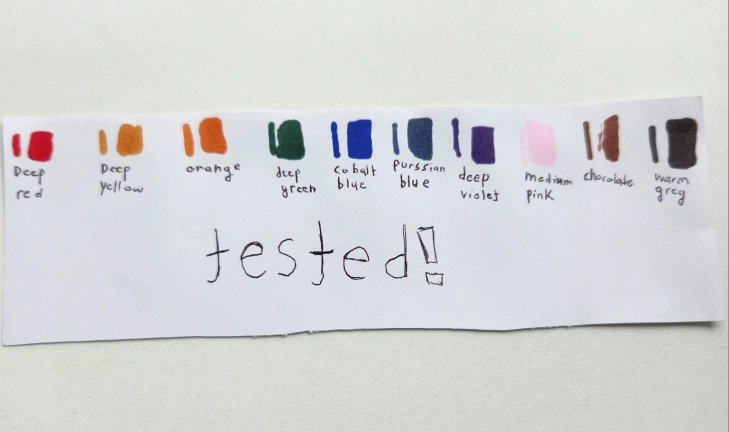 Deep
red
Deep
yellow
orange
deep
green
Cobalt
blue
Purssian
blue
deep
violet
medium
pink
chocolate
warm
grey
tested!